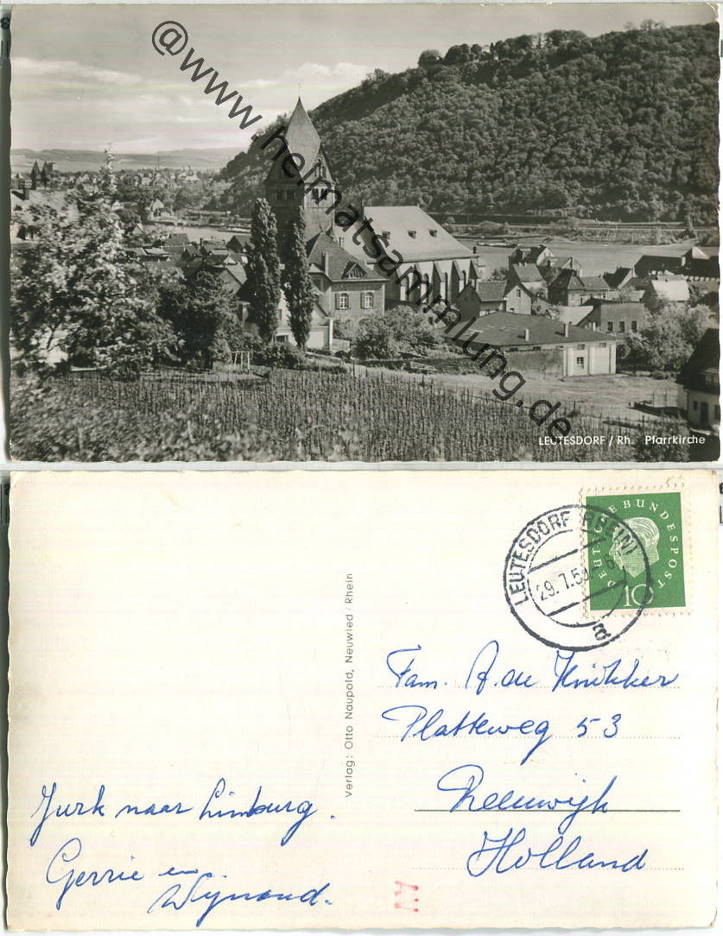 @www.heimatsammlung.de
LEUTESDORF / Rh. Pfarrkirche
DEUTSCHE BUNDESPOST
10
LEUTESDORF (RHEIN)
29.7.59
a
Verlag: Otto Naupold, Neuwied / Rhein
Fam. A. de Knikker
Platteweg 53
Reeuwijk
Holland
naar Limburg.
Gerrie en
Wijnand.